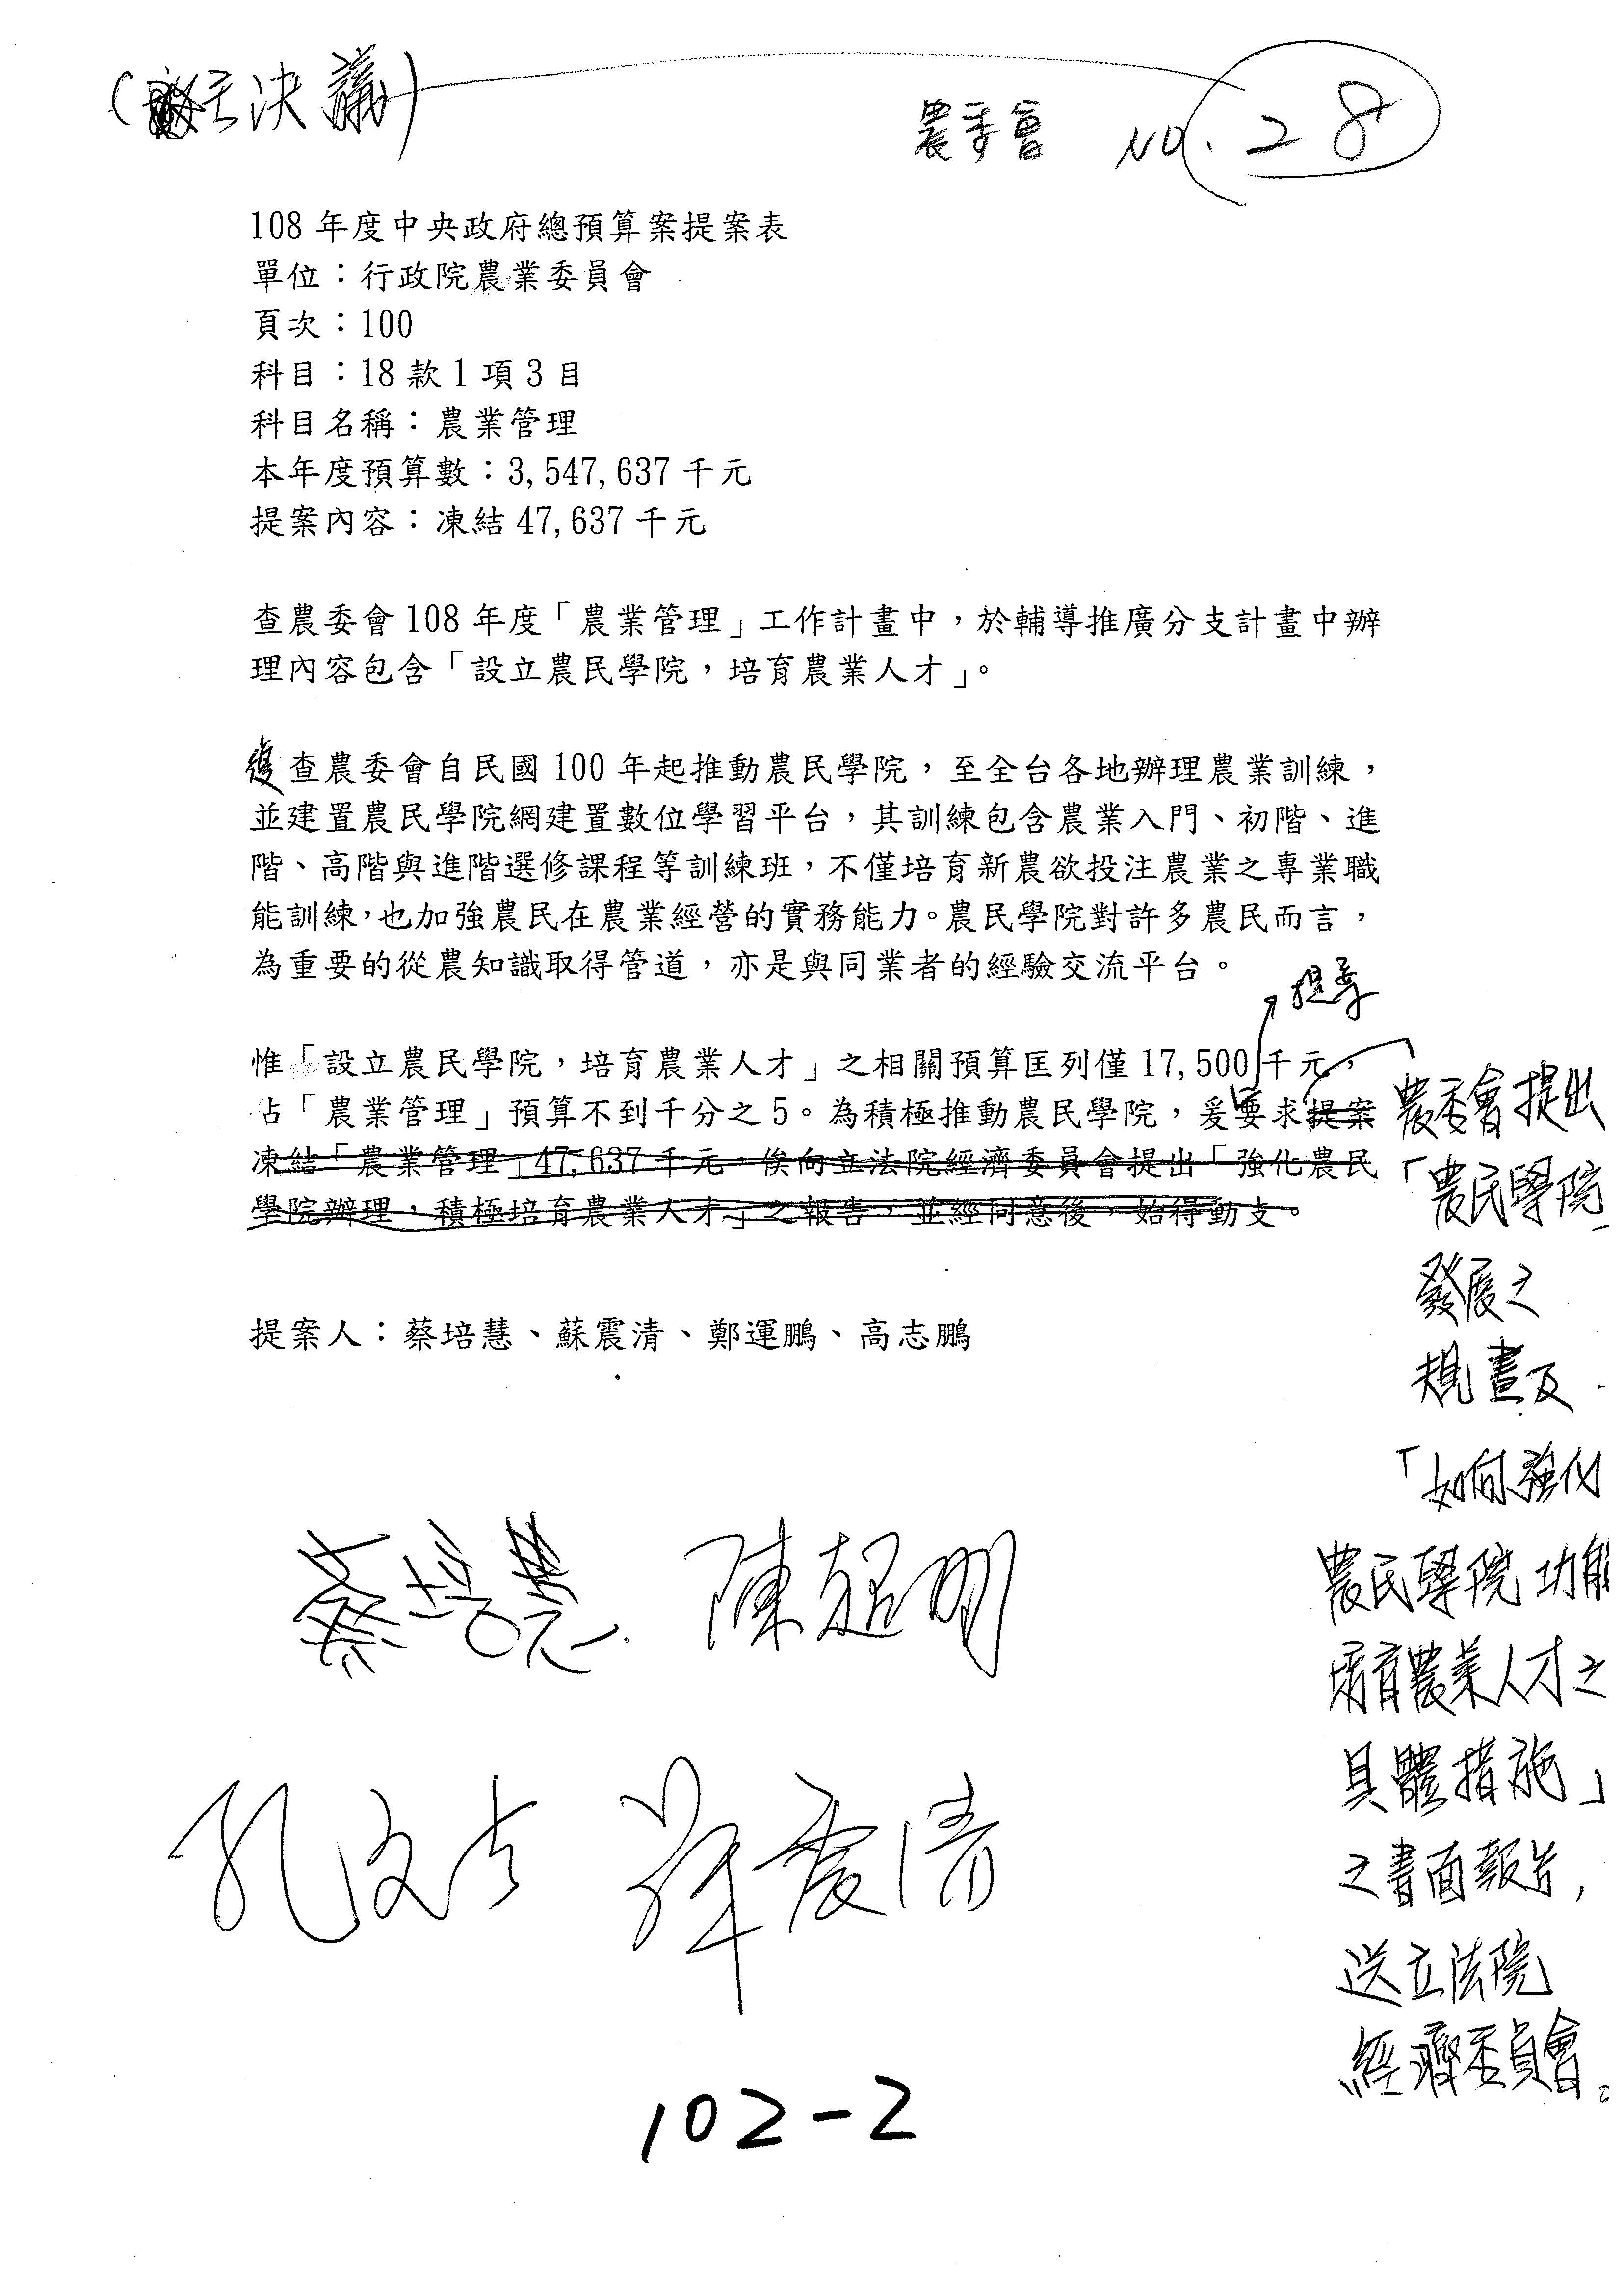 (主決議)
農委會 NO. 28
108 年度中央政府總預算案提案表
單位：行政院農業委員會
頁次：100
科目：18 款 1 項 3 目
科目名稱：農業管理
本年度預算數：3,547,637 千元
提案內容：凍結 47,637 千元
查農委會 108 年度「農業管理」工作計畫中，於輔導推廣分支計畫中辦
理內容包含「設立農民學院，培育農業人才」。
復查農委會自民國 100 年起推動農民學院，至全台各地辦理農業訓練，
並建置農民學院網建置數位學習平台，其訓練包含農業入門、初階、進
階、高階與進階選修課程等訓練班，不僅培育新農欲投注農業之專業職
能訓練，也加強農民在農業經營的實務能力。農民學院對許多農民而言，
為重要的從農知識取得管道，亦是與同業者的經驗交流平台。
提案
惟「設立農民學院，培育農業人才」之相關預算匡列僅 17,500 千元，
佔「農業管理」預算不到千分之 5。為積極推動農民學院，爰要求提案
凍結「農業管理」47,637 千元，俟向立法院經濟委員會提出「強化農民
學院辦理，積極培育農業人才」之報告，並經同意後，始得動支。
農委會提出
「農民學院
發展之
規畫及
「如何強化
農民學院功能
培育農業人才之
具體措施」
之書面報告，
送立法院
經濟委員會。
提案人：蔡培慧、蘇震清、鄭運鵬、高志鵬
蔡培慧 陳超明
孔文吉 蘇震清
102-2